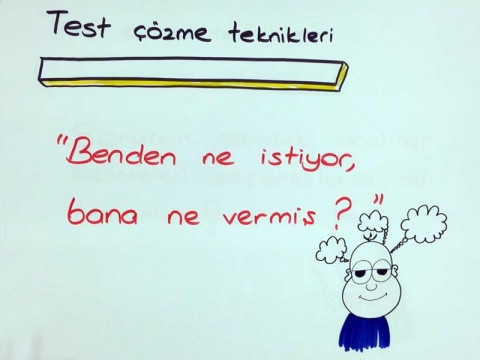 Test çözme teknikleri
"Benden ne istiyor,
bana ne vermiş ? "